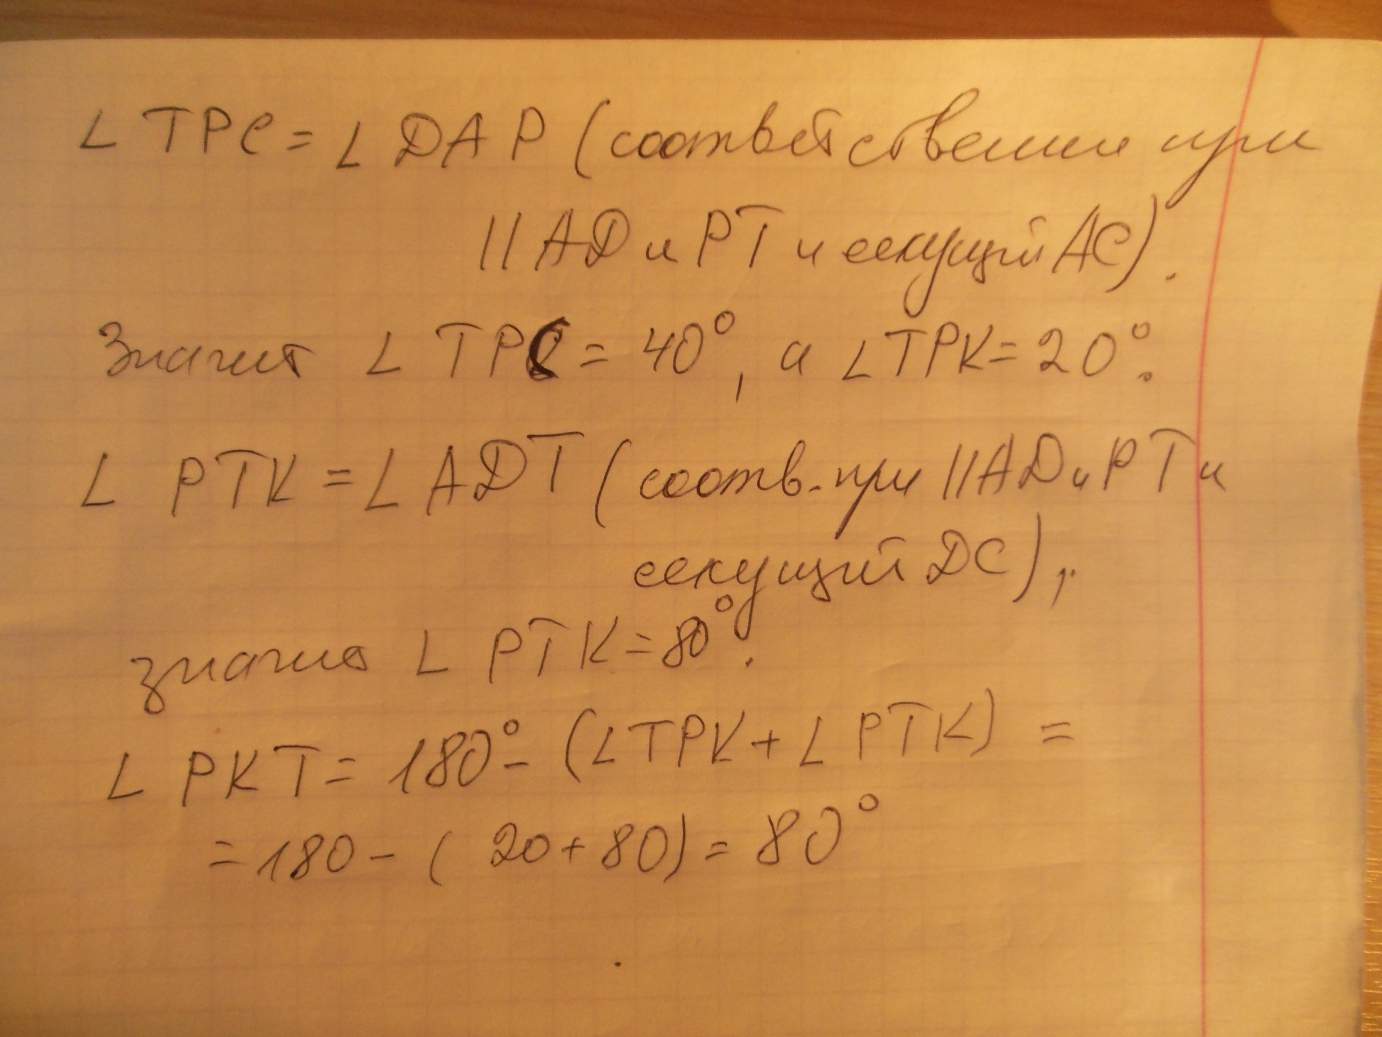 ∠ TPC = ∠ DAP (соответственные при
|| AD и PT и секущей AC).
Значит ∠ TPC = 40°, а ∠ TPK = 20°.
∠ PTK = ∠ ADT (соотв. при || AD и PT и
секущей DC),
значит ∠ PTK = 80°.
∠ PKT = 180° - (∠ TPK + ∠ PTK) =
= 180 - ( 20 + 80) = 80°